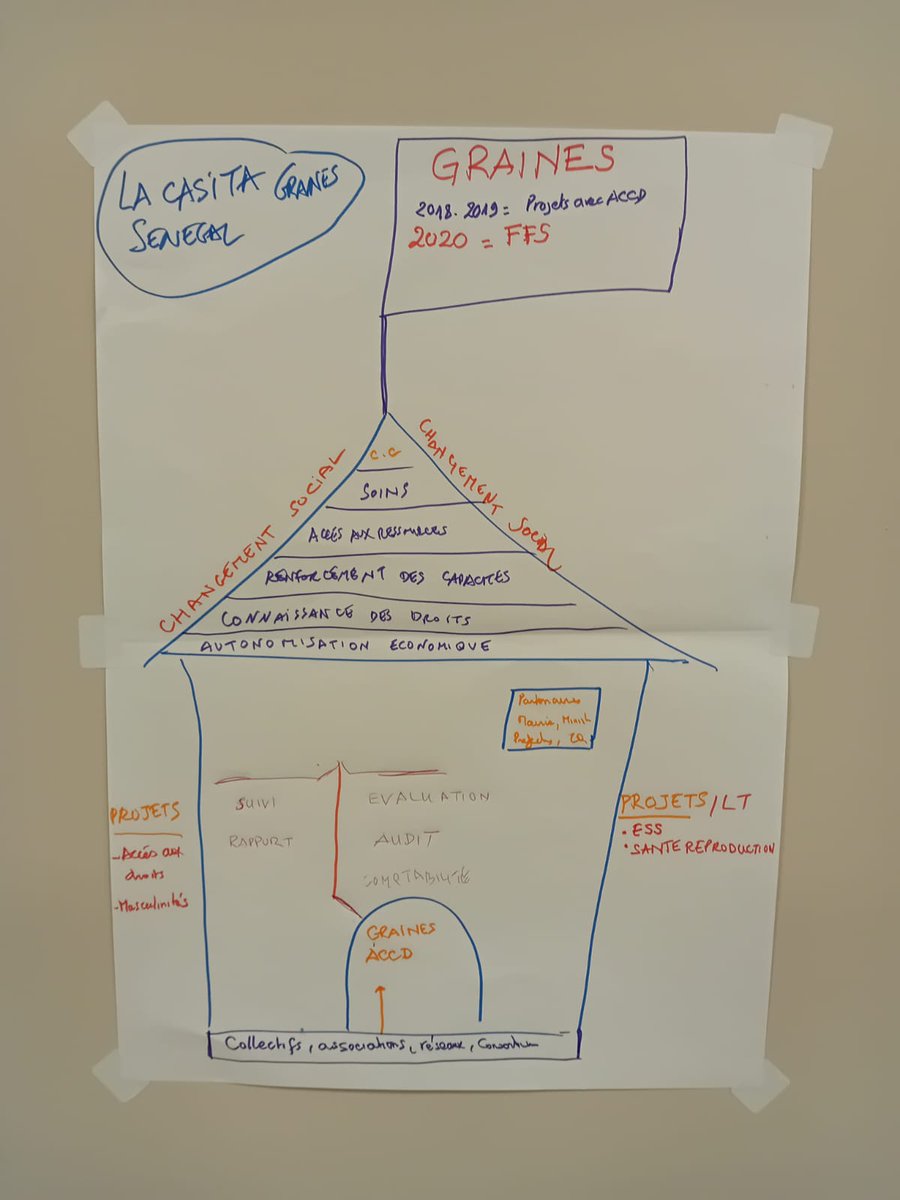 LA CASITA GRANES
SENEGAL
GRAINES
2018-2019 = Projets avec ACCD
2020 = FFS
CHANGEMENT SOCIAL
CHANGEMENT SOCIAL
C.C
SOINS
ACCÉS AUX RESSOURCES
RENFORCEMENT DES CAPACITÉS
CONNAISSANCE DES DROITS
AUTONOMISATION ECONOMIQUE
Partenaires
Mairie, Minist
SUIVI
RAPPORT
EVALUATION
AUDIT
COMPTABILITÉ
PROJETS
- Accés aux
droits
- Masculinités
PROJETS/LT
• ESS
• SANTE REPRODUCTION
GRAINES
ACCD
Collectifs, associations, réseaux, Consortium